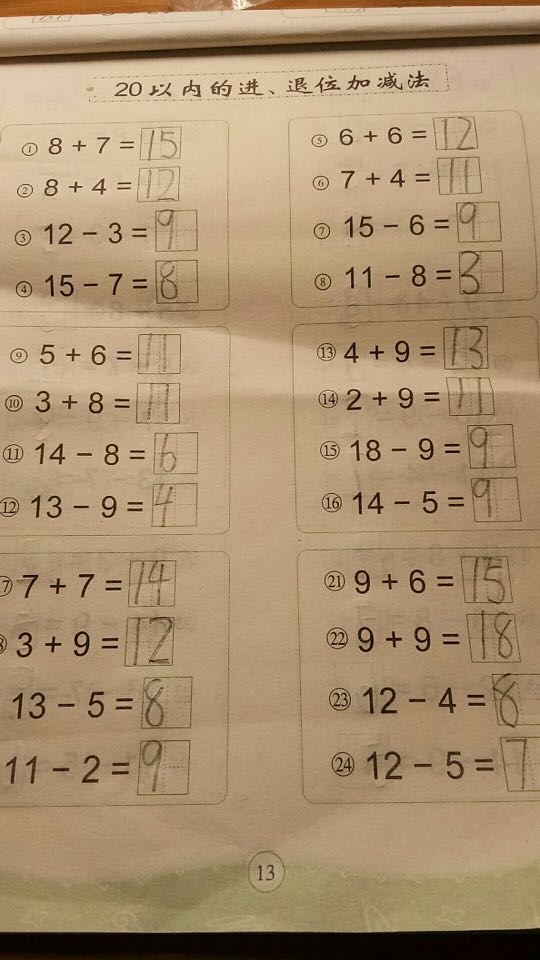 20以内的进、退位加减法
① 8 + 7 = 15
② 8 + 4 = 12
③ 12 − 3 = 9
④ 15 − 7 = 8
⑤ 6 + 6 = 12
⑥ 7 + 4 = 11
⑦ 15 − 6 = 9
⑧ 11 − 8 = 3
⑨ 5 + 6 = 11
⑩ 3 + 8 = 11
⑪ 14 − 8 = 6
⑫ 13 − 9 = 4
⑬ 4 + 9 = 13
⑭ 2 + 9 = 11
⑮ 18 − 9 = 9
⑯ 14 − 5 = 9
7 + 7 = 14
3 + 9 = 12
13 − 5 = 8
11 − 2 = 9
㉑ 9 + 6 = 15
㉒ 9 + 9 = 18
㉓ 12 − 4 = 8
㉔ 12 − 5 = 7
13